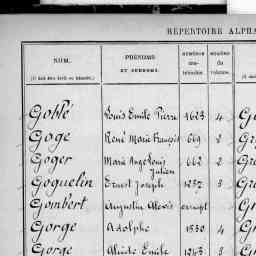 RÉPERTOIRE ALPHA
NOM.
(Il doit être écrit en bâtarde.)
PRÉNOMS
ET SURNOMS.
NUMÉROS
ma-
tricules.
NUMÉRO
du
volume.
Goblé Louis Emile Pierre 1623 4
Goge René Marie François 669 2
Goger Marie Ange Louis 662 2
Julien
Goguelin Ernest Joseph 1257 3
Gombert Augustin Alexis exempt
Gorge Adolphe 1830 4
Gorge Alcide Emile 1243 3